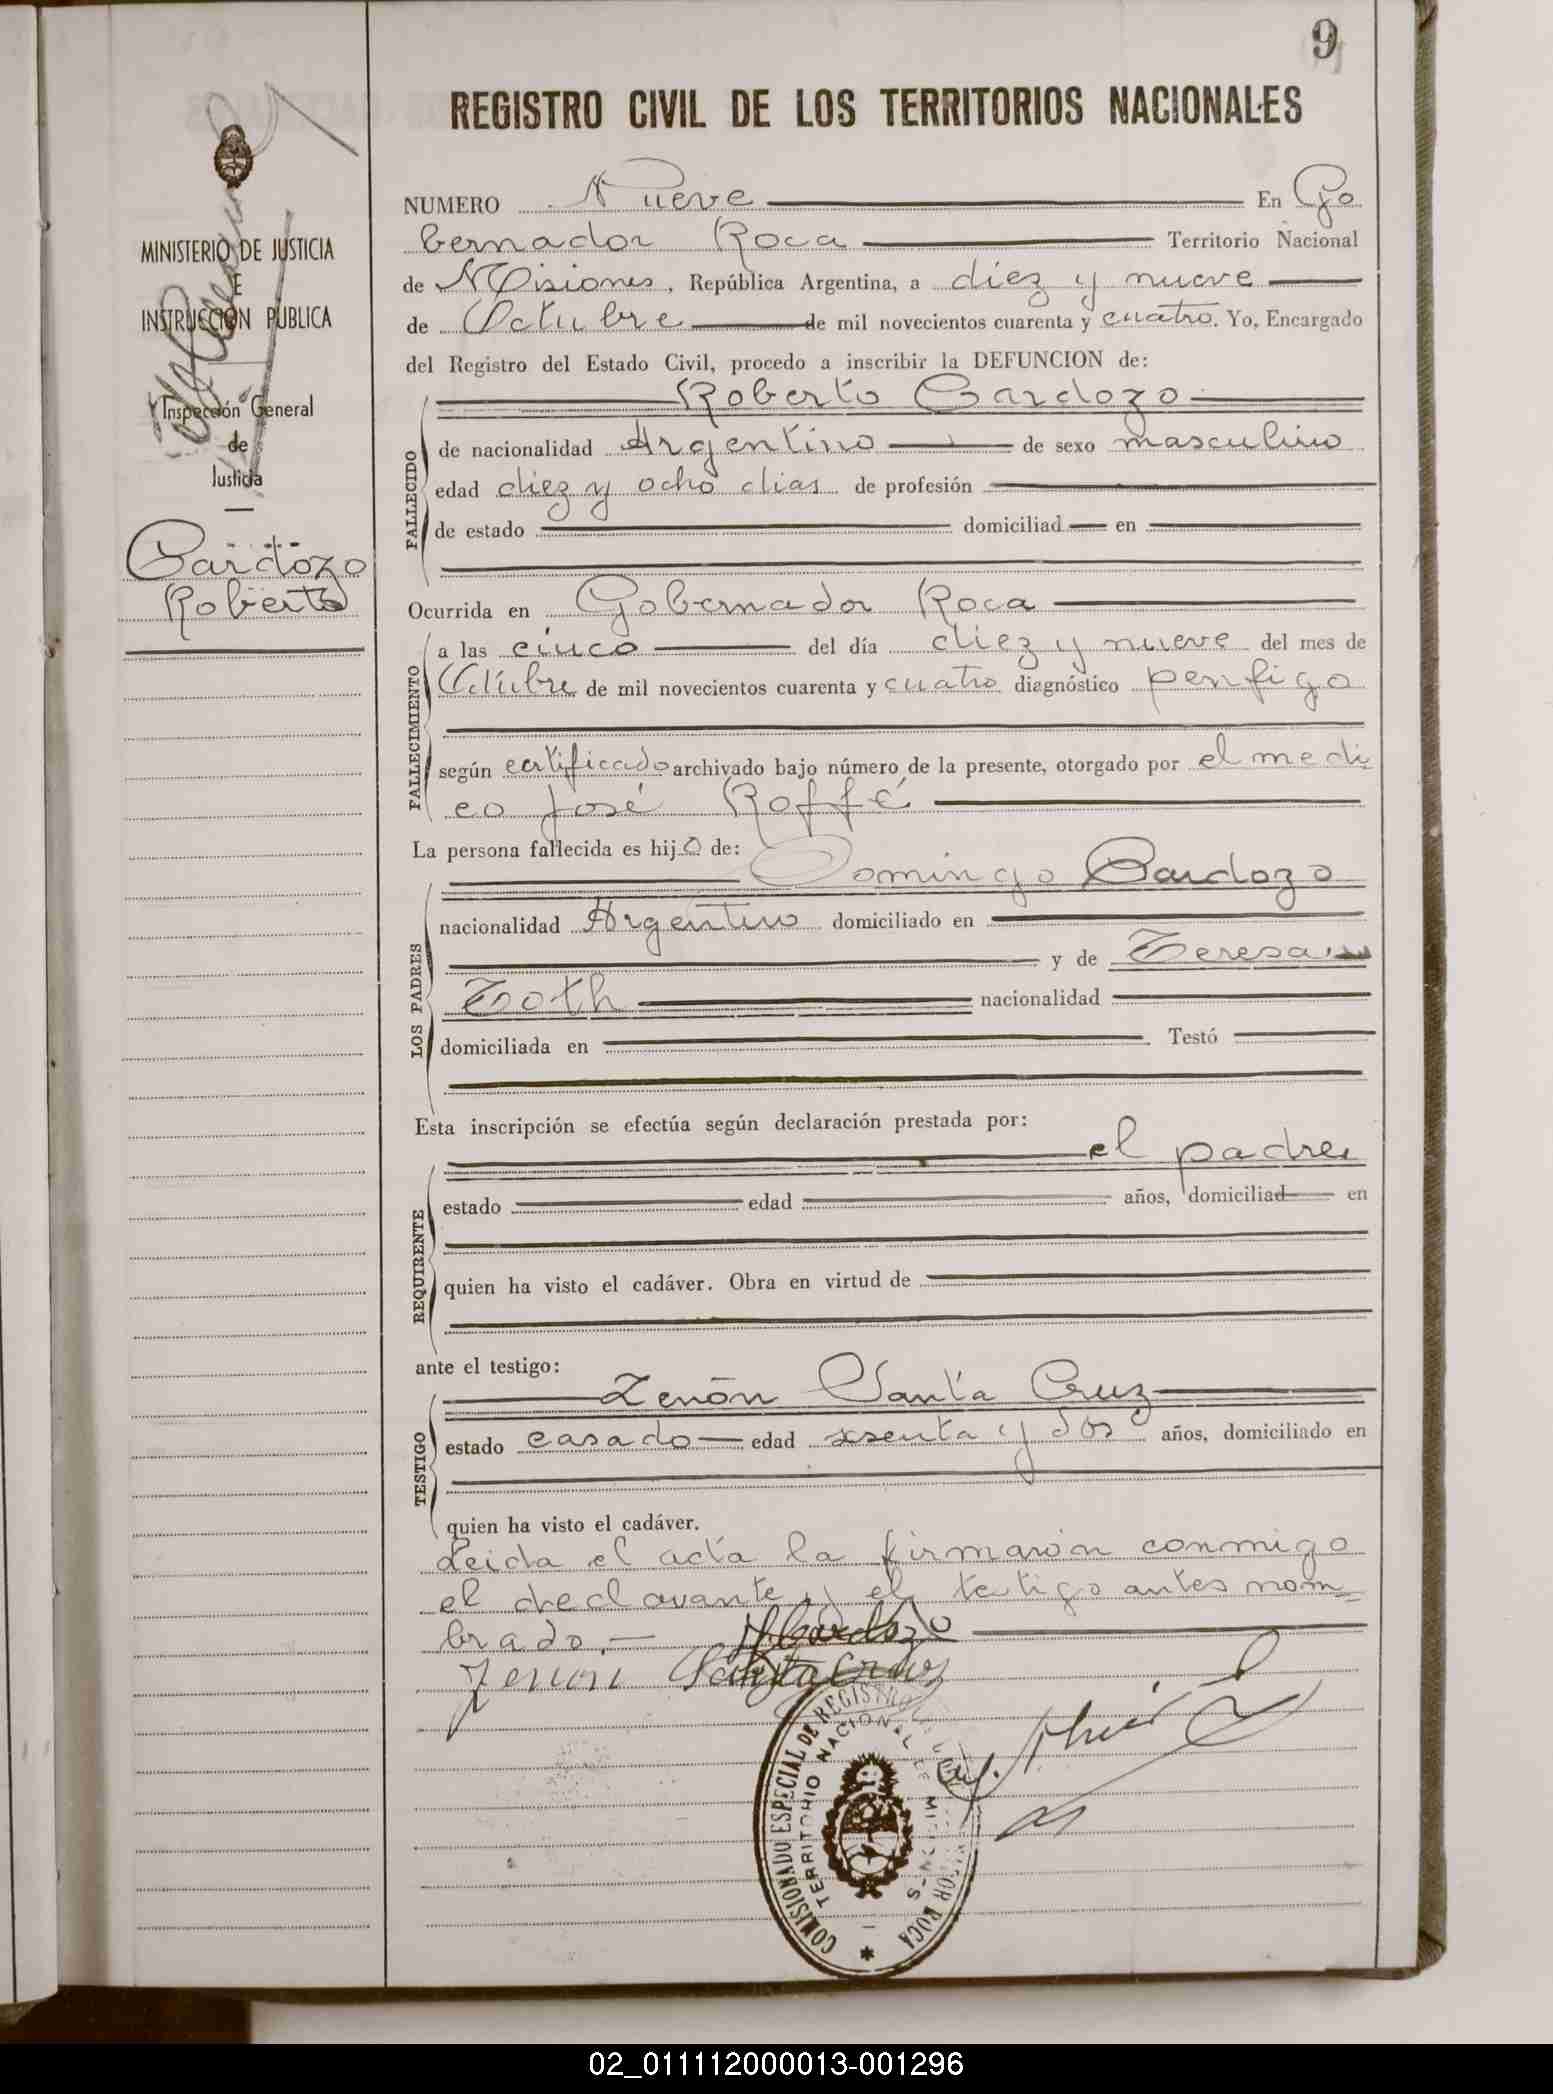 9
REGISTRO CIVIL DE LOS TERRITORIOS NACIONALES
MINISTERIO DE JUSTICIA
E
INSTRUCCIÓN PUBLICA
Inspección General
de
Justicia
Cardozo
Roberto
NUMERO Nueve En Go
bernador Roca Territorio Nacional
de Misiones, República Argentina, a diez y nueve
de Octubre de mil novecientos cuarenta y cuatro. Yo, Encargado
del Registro del Estado Civil, procedo a inscribir la DEFUNCION de:
Roberto Cardozo
FALLECIDO
de nacionalidad Argentino de sexo masculino
edad diez y ocho dias de profesión
de estado domiciliad en
Ocurrida en Gobernador Roca
FALLECIMIENTO
a las cinco del día diez y nueve del mes de
Octubre de mil novecientos cuarenta y cuatro diagnóstico penfigo
según certificado archivado bajo número de la presente, otorgado por el medi
co José Roffé
La persona fallecida es hijo de:
LOS PADRES
Domingo Cardozo
nacionalidad Argentino domiciliado en
y de Teresa
Toth nacionalidad
domiciliada en Testó
Esta inscripción se efectúa según declaración prestada por:
REQUIRENTE
el padre
estado edad años, domiciliad en
quien ha visto el cadáver. Obra en virtud de
ante el testigo:
TESTIGO
Zenón Santa Cruz
estado casado edad sesenta y dos años, domiciliado en
quien ha visto el cadáver.
Leida el acta la firmaron conmigo
el declarante y el testigo antes nom=
brado.— Cardozo
Zenon Santa Cruz
COMISIONADO ESPECIAL DE REGISTRO
TERRITORIO NACIONAL DE MISIONES
ROCA
02_011112000013-001296